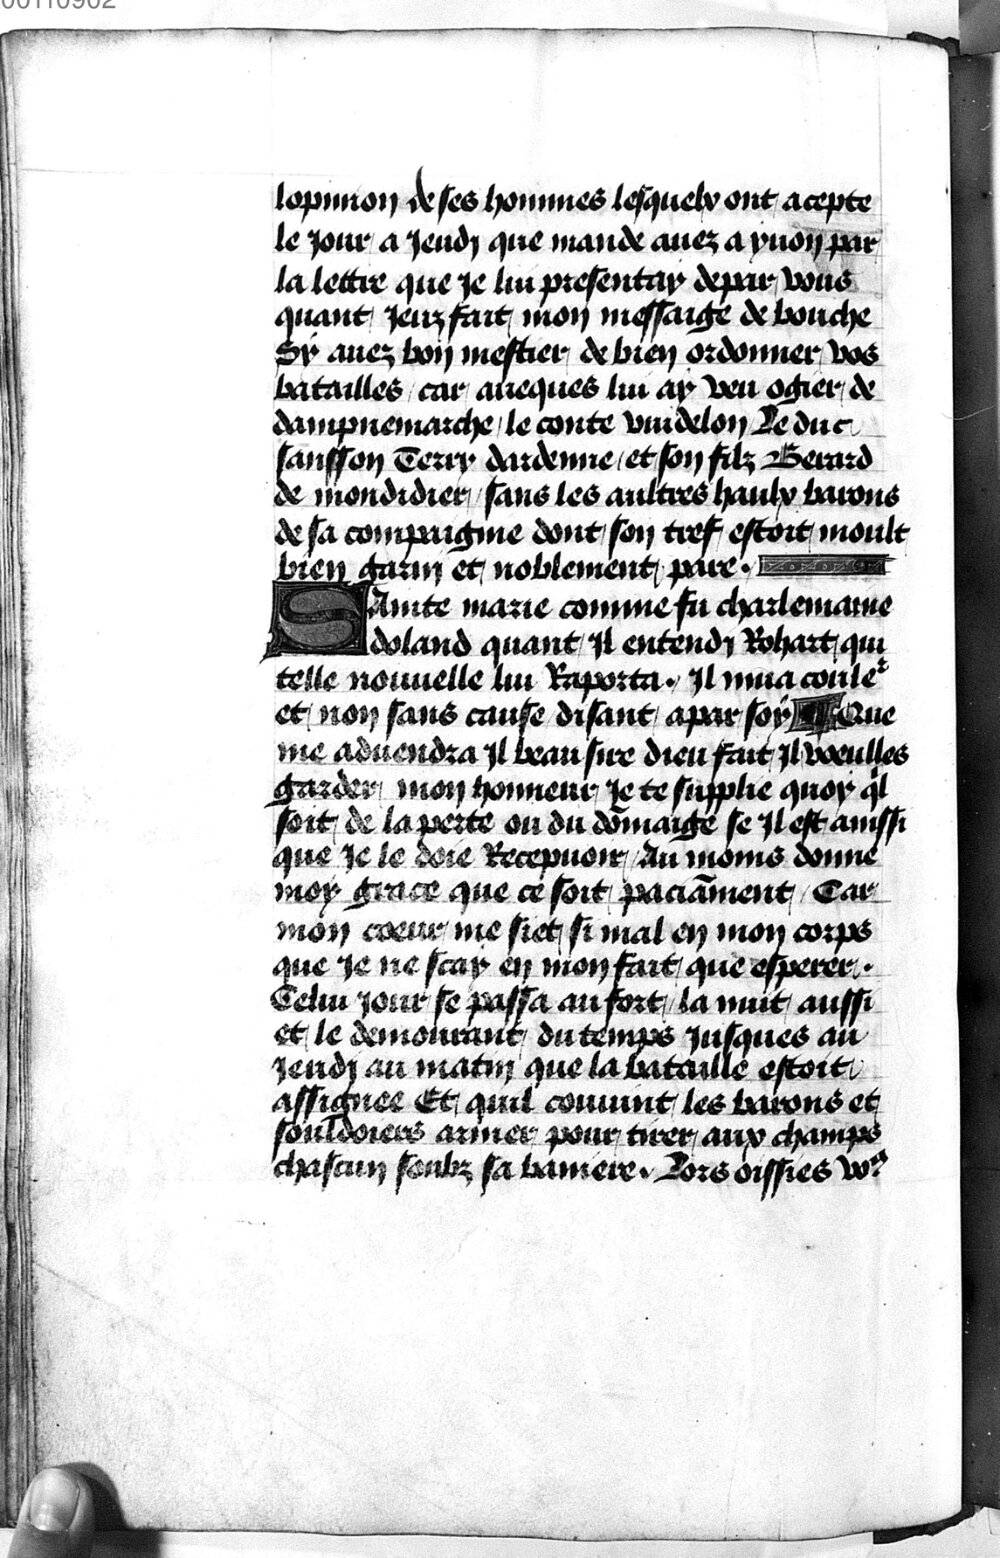 00110902
lopinion de ses hommes lesquelx ont acepte
le Jour a Jeudj que mande auez a yuon par
la lettre que Je lui presentay depar vous
quant Jeuz fait mon messaige de bouche
Sy auez bon mestier de bien ordonner vos
batailles / car auecques lui ay veu ogier de
dampnemarche / le conte vuidelon Le duc
sansson Terry dardenne / et son filz Berard
de mondidier / sans les aultres haulx barons
de sa compaignie dont son tref estoit moult
bien garni et noblement pare .
SAinte marie comme fu charlemaine
doland quant Il entendj Rohart qui
telle nouuelle lui Raporta . Il mua couler
et non sans cause disant apar soy ¶ Que
me aduendra Il beau sire dieu fait Il voeulles
garder mon honneur Je te supplie quoy ql
soit de la perte ou du dōmaige se Il est ainssi
que Je le doie Recepuoir / Au moins donne
moy grace que ce soit paciāment / Car
mon coeur me siet si mal en mon corps
que Je ne scay en mon fait que esperer .
Celui Jour se passa au fort / la nuit aussi
et le demourant du temps Jusques au
Jeudj au matin que la bataille estoit
assignee Et quil conuint les barons et
souldoiers armer pour tirer aux champs
chascun soubz sa baniere . Lors oissies